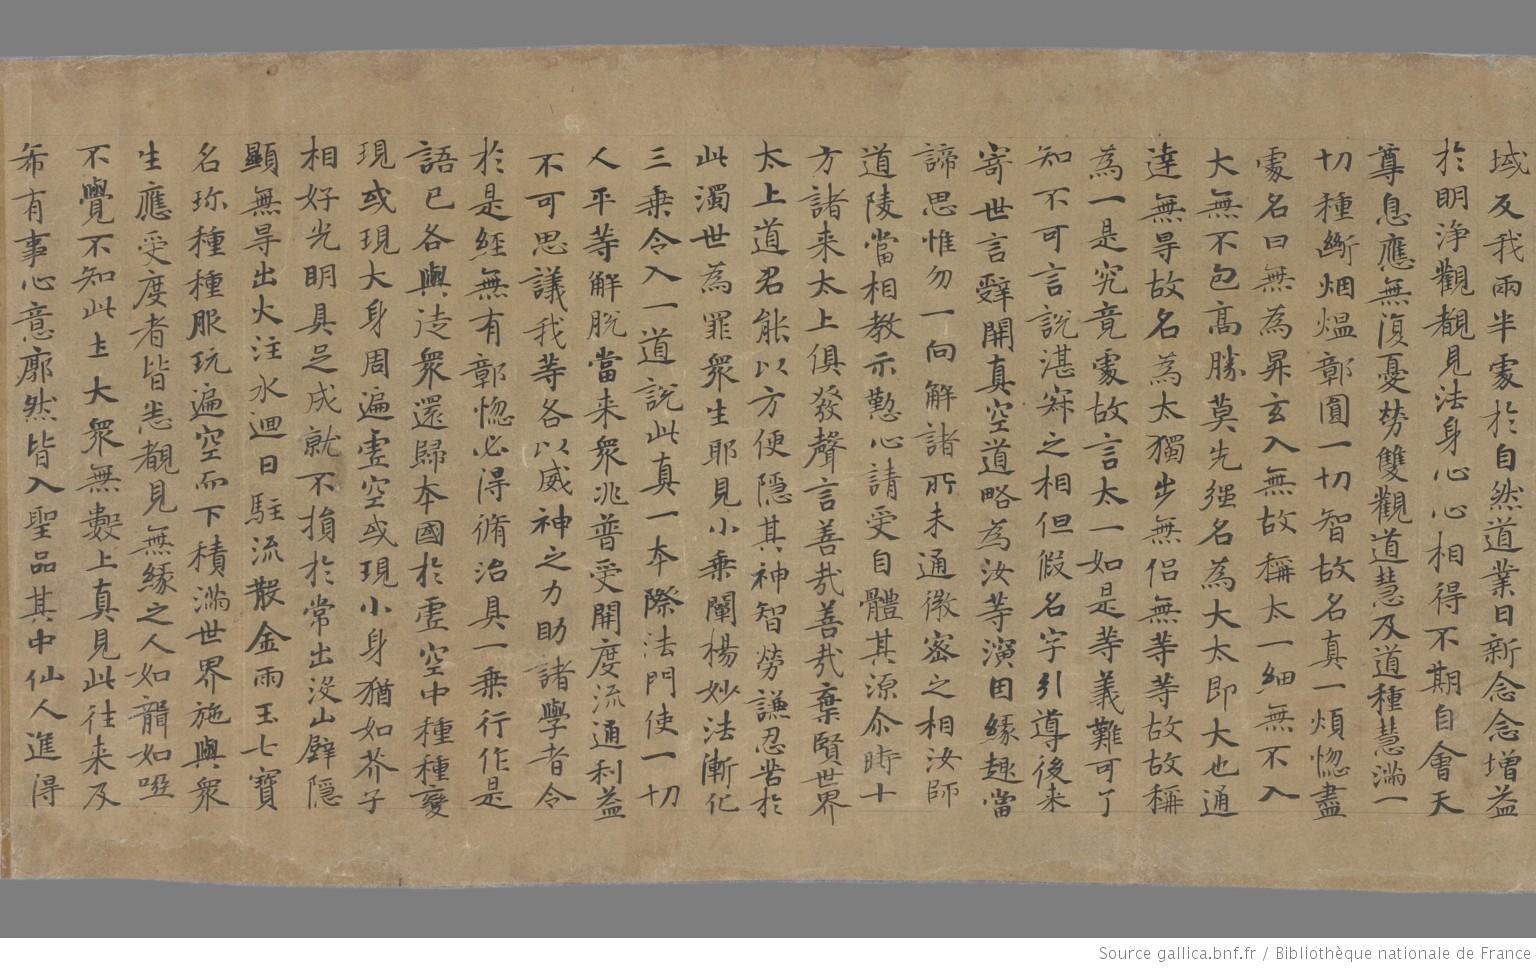 域及我兩半處於自然道業日新念念增益
於明淨觀覩見法身心心相得不期自會天
尊息應無復憂勞雙觀道慧及道種慧滿一
切種斷烟煴鄣圓一切智故名真一煩惚盡
處名曰無為昇玄入無故稱太一細無不入
大無不包高勝莫先强名為大太即大也通
達無㝵故名為太獨步無侶無等等故故稱
為一是究竟處故言太一如是等義難可了
知不可言說湛寂之相但假名字引導後来
寄世言辝開真空道略為汝等演因緣趣當
諦思惟勿一向解諸所未通微密之相汝師
道陵當相教示懃心請受自體其源尒時十
方諸来太上俱發聲言善㢤善㢤棄賢世界
太上道君能以方便隱其神智勞謙忍苦於
此濁世為罪衆生耶見小乗闡楊妙法漸化
三乗令入一道說此真一本際法門使一切
人平等解脫當来衆兆普受開度流通利益
不可思議我等各以威神之力助諸學者令
於是經無有鄣惚必得脩治具一乗行作是
語已各與徒衆還歸本國於虛空中種種變
現或現大身周遍虛空或現小身猶如芥子
相好光明具足成就不損於常出沒山壁隱
顯無㝵出火注水迴日駐流散金雨玉七寶
名珎種種服玩遍空而下積滿世界施與衆
生應受度者皆悉覩見無緣之人如聾如啞
不覺不知此土大衆無數上真見此往来及
希有事心意廓然皆入聖品其中仙人進得
Source gallica.bnf.fr / Bibliothèque nationale de France